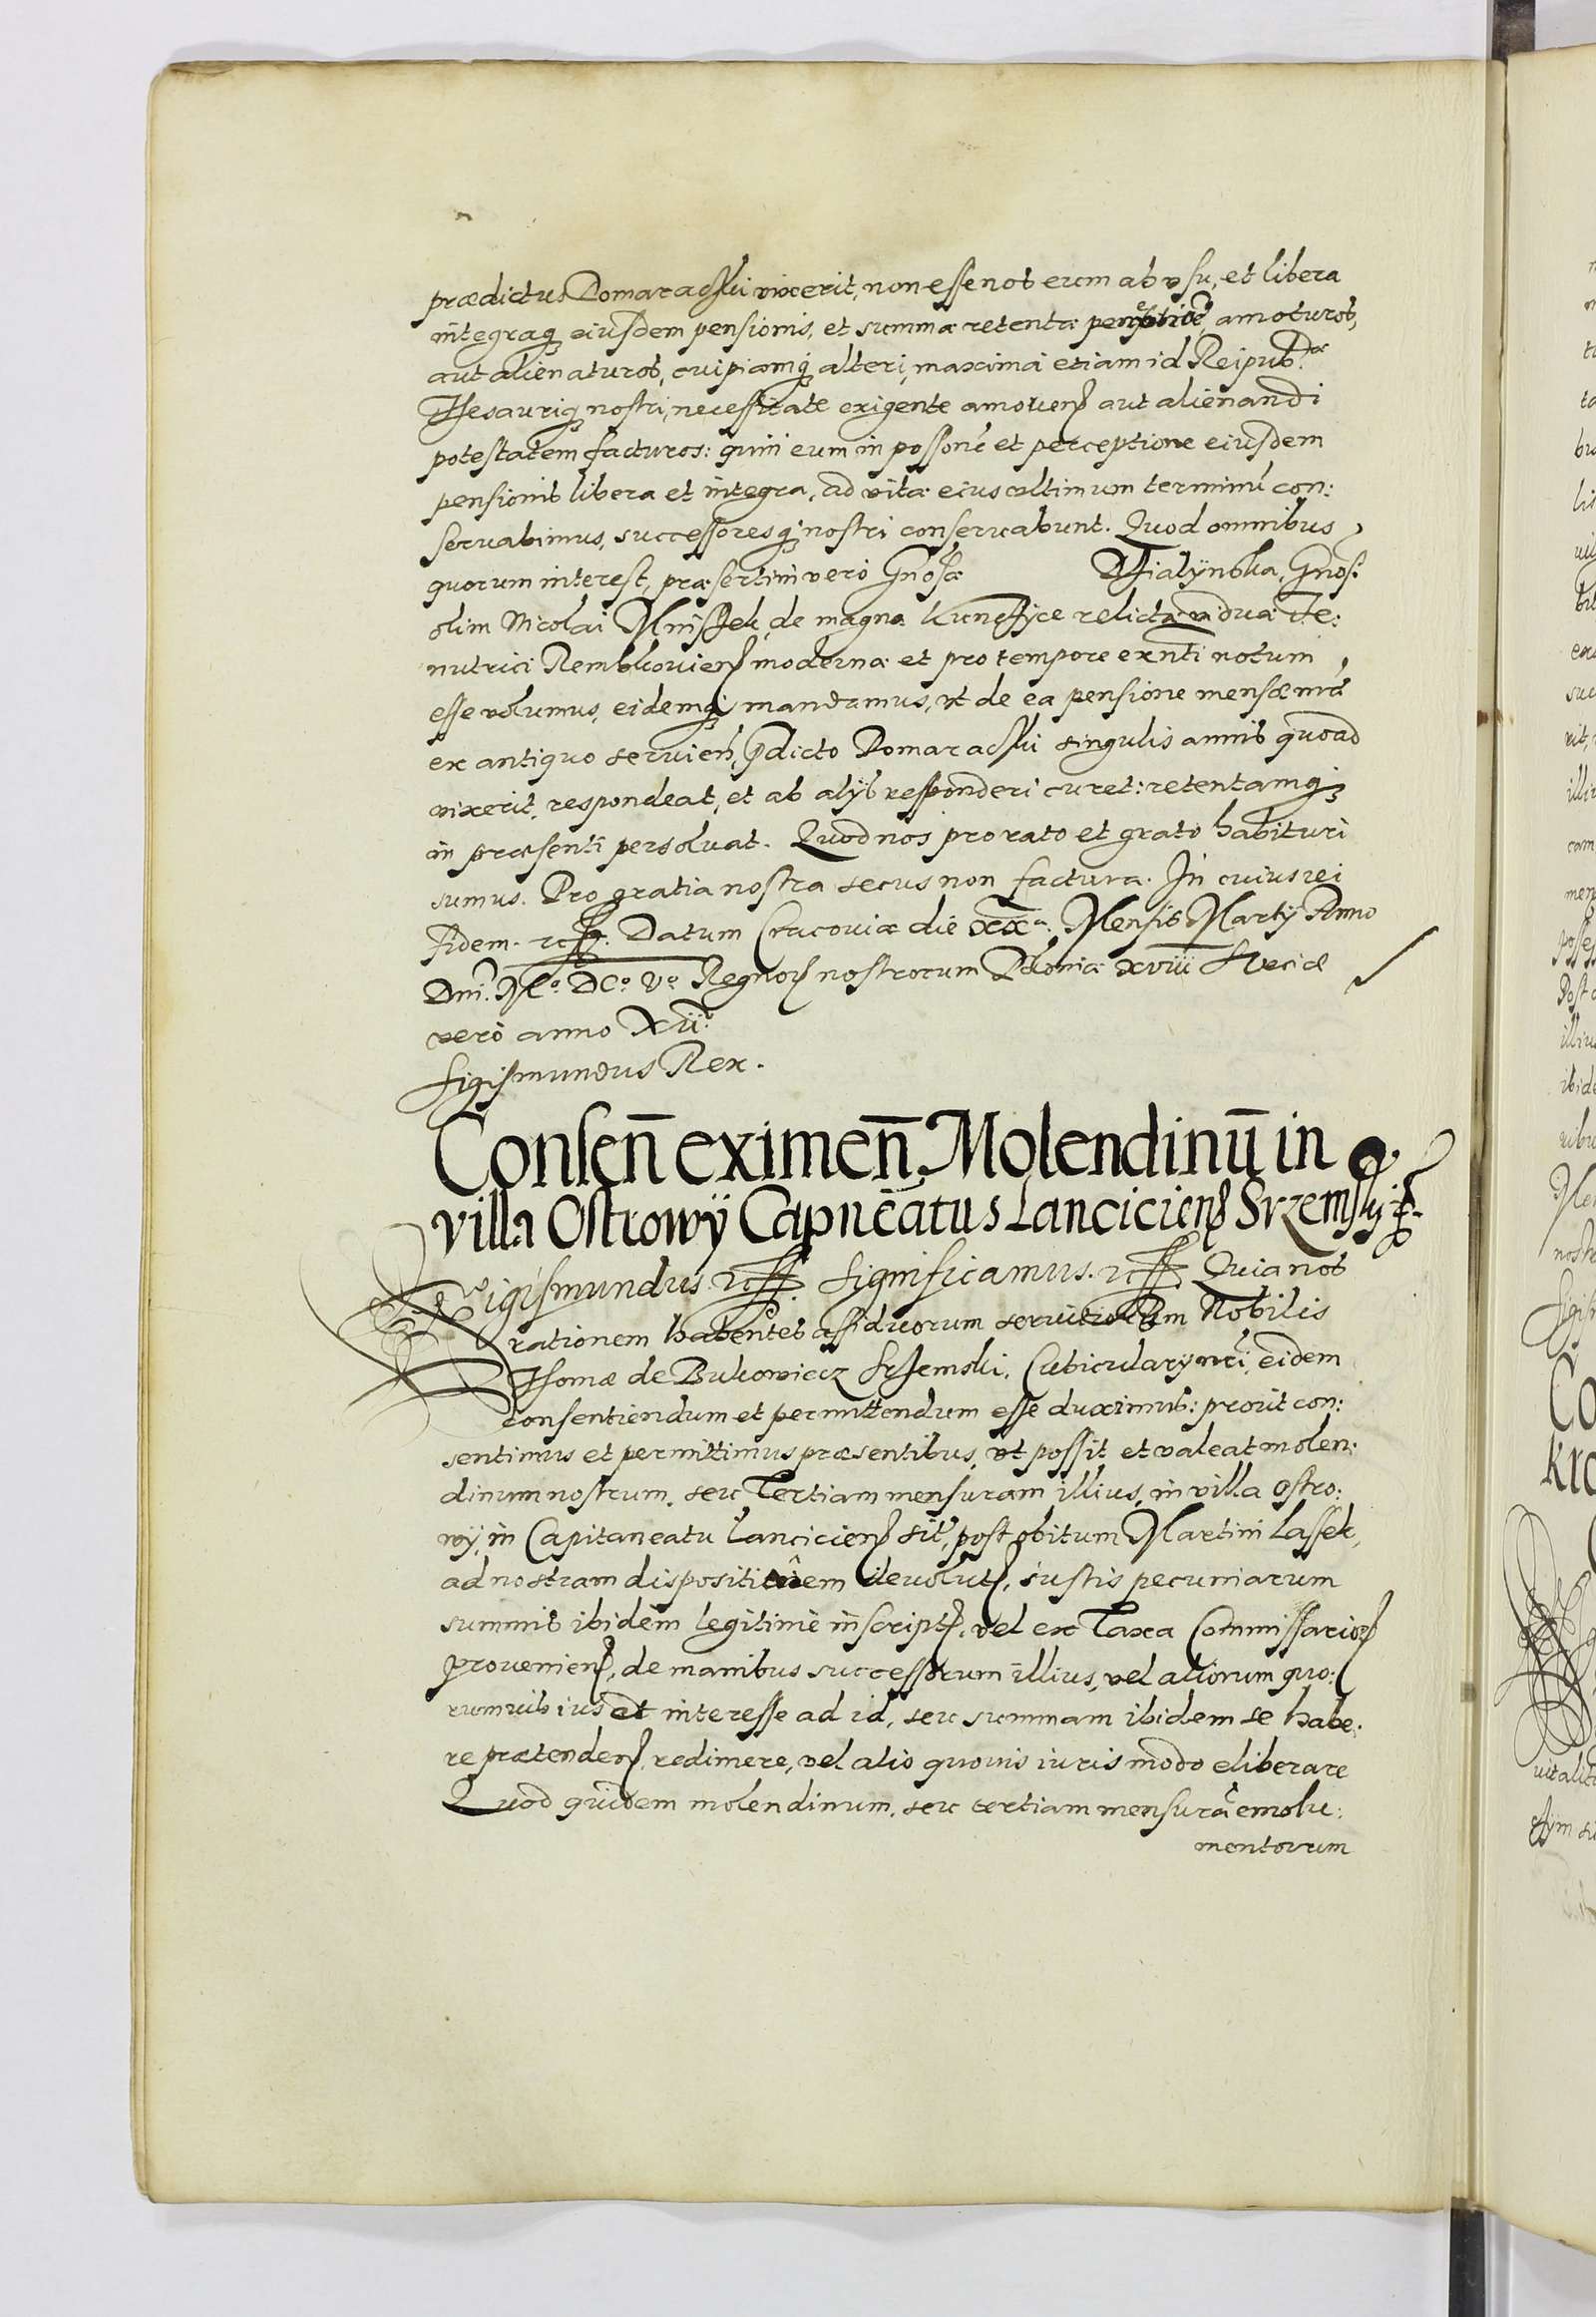 prædictus Domaradski vixerit, non esse nos eum ab usu, et libera
integraq; eiusdem pensionis, et summæ retentæ amoturos,
aut alienaturos, cuipiamq; alteri, maxima etiam id Reipub:cæ
Thesauriq; nostri, necessitate exigente amoven aut alienandi
potestatem facturos: quin eum in possone et perceptione eiusdem
pensionis libera et integra, ad vitæ eius ultimum terminū con:
servabimus, successoresq; nostri conservabunt. Quod omnibus
quorum interest, præsertim vero Gnosæ Dzialÿnska, Gnos:
olim Nicolai Mnissek, de magna Kunczyce relictæ viduæ Te:
nutrici Rembkovien modernæ et pro tempore exnti notum
esse volumus, eidemq; mandamus, ut de ea pensione mensæ nræ
ex antiquo servien, pdicto Domaradski singulis annis quoad
vixerit, respondeat, et ab alÿs responderi curet: retentamq;
in præsenti persolvat. Quod nos pro rato et grato habituri
sumus. Pro gratia nostra secus non factura. In cuius rei
fidem. etc. Datum Cracoviæ die xix: Mensis Martÿ Anno
Dni. Mo. DCo. Vo Regnor nostrorum Poloniæ xviii Sveciæ
vero anno XII.
Sigismundus Rex.
Consen eximen. Molendinū in
villa Ostrowÿ Capnēatus Lancicien Srzemsky
Sigismundus. etc. Significamus. etc. Quia nos
rationem habentes assiduorum servitiorum Nobilis
Thomæ de Bukowiecz Srzemski, Cubicularÿ nri, eidem
consentiendum et permittendum esse duximus: prout con:
sentimus et permittimus præsentibus, ut possit et valeat molen:
dinum nostrum, seu Tertiam mensuram illius, in villa Ostro:
wÿ, in Capitaneatu Lancicien sit, post obitum Martini Lassek,
ad nostram dispositionem devolut, iustis pecuniarum
summis ibidem legitime inscript, vel ex Taxa Commissarior
provenien, de manibus successorum illius, vel aliorum quo:
rumvis ius et interesse ad id, seu summam ibidem se habe:
re prætenden, redimere, vel alio quovis iuris modo eliberare
Quod quidem molendinum, seu tertiam mensurā emolu:
mentorum